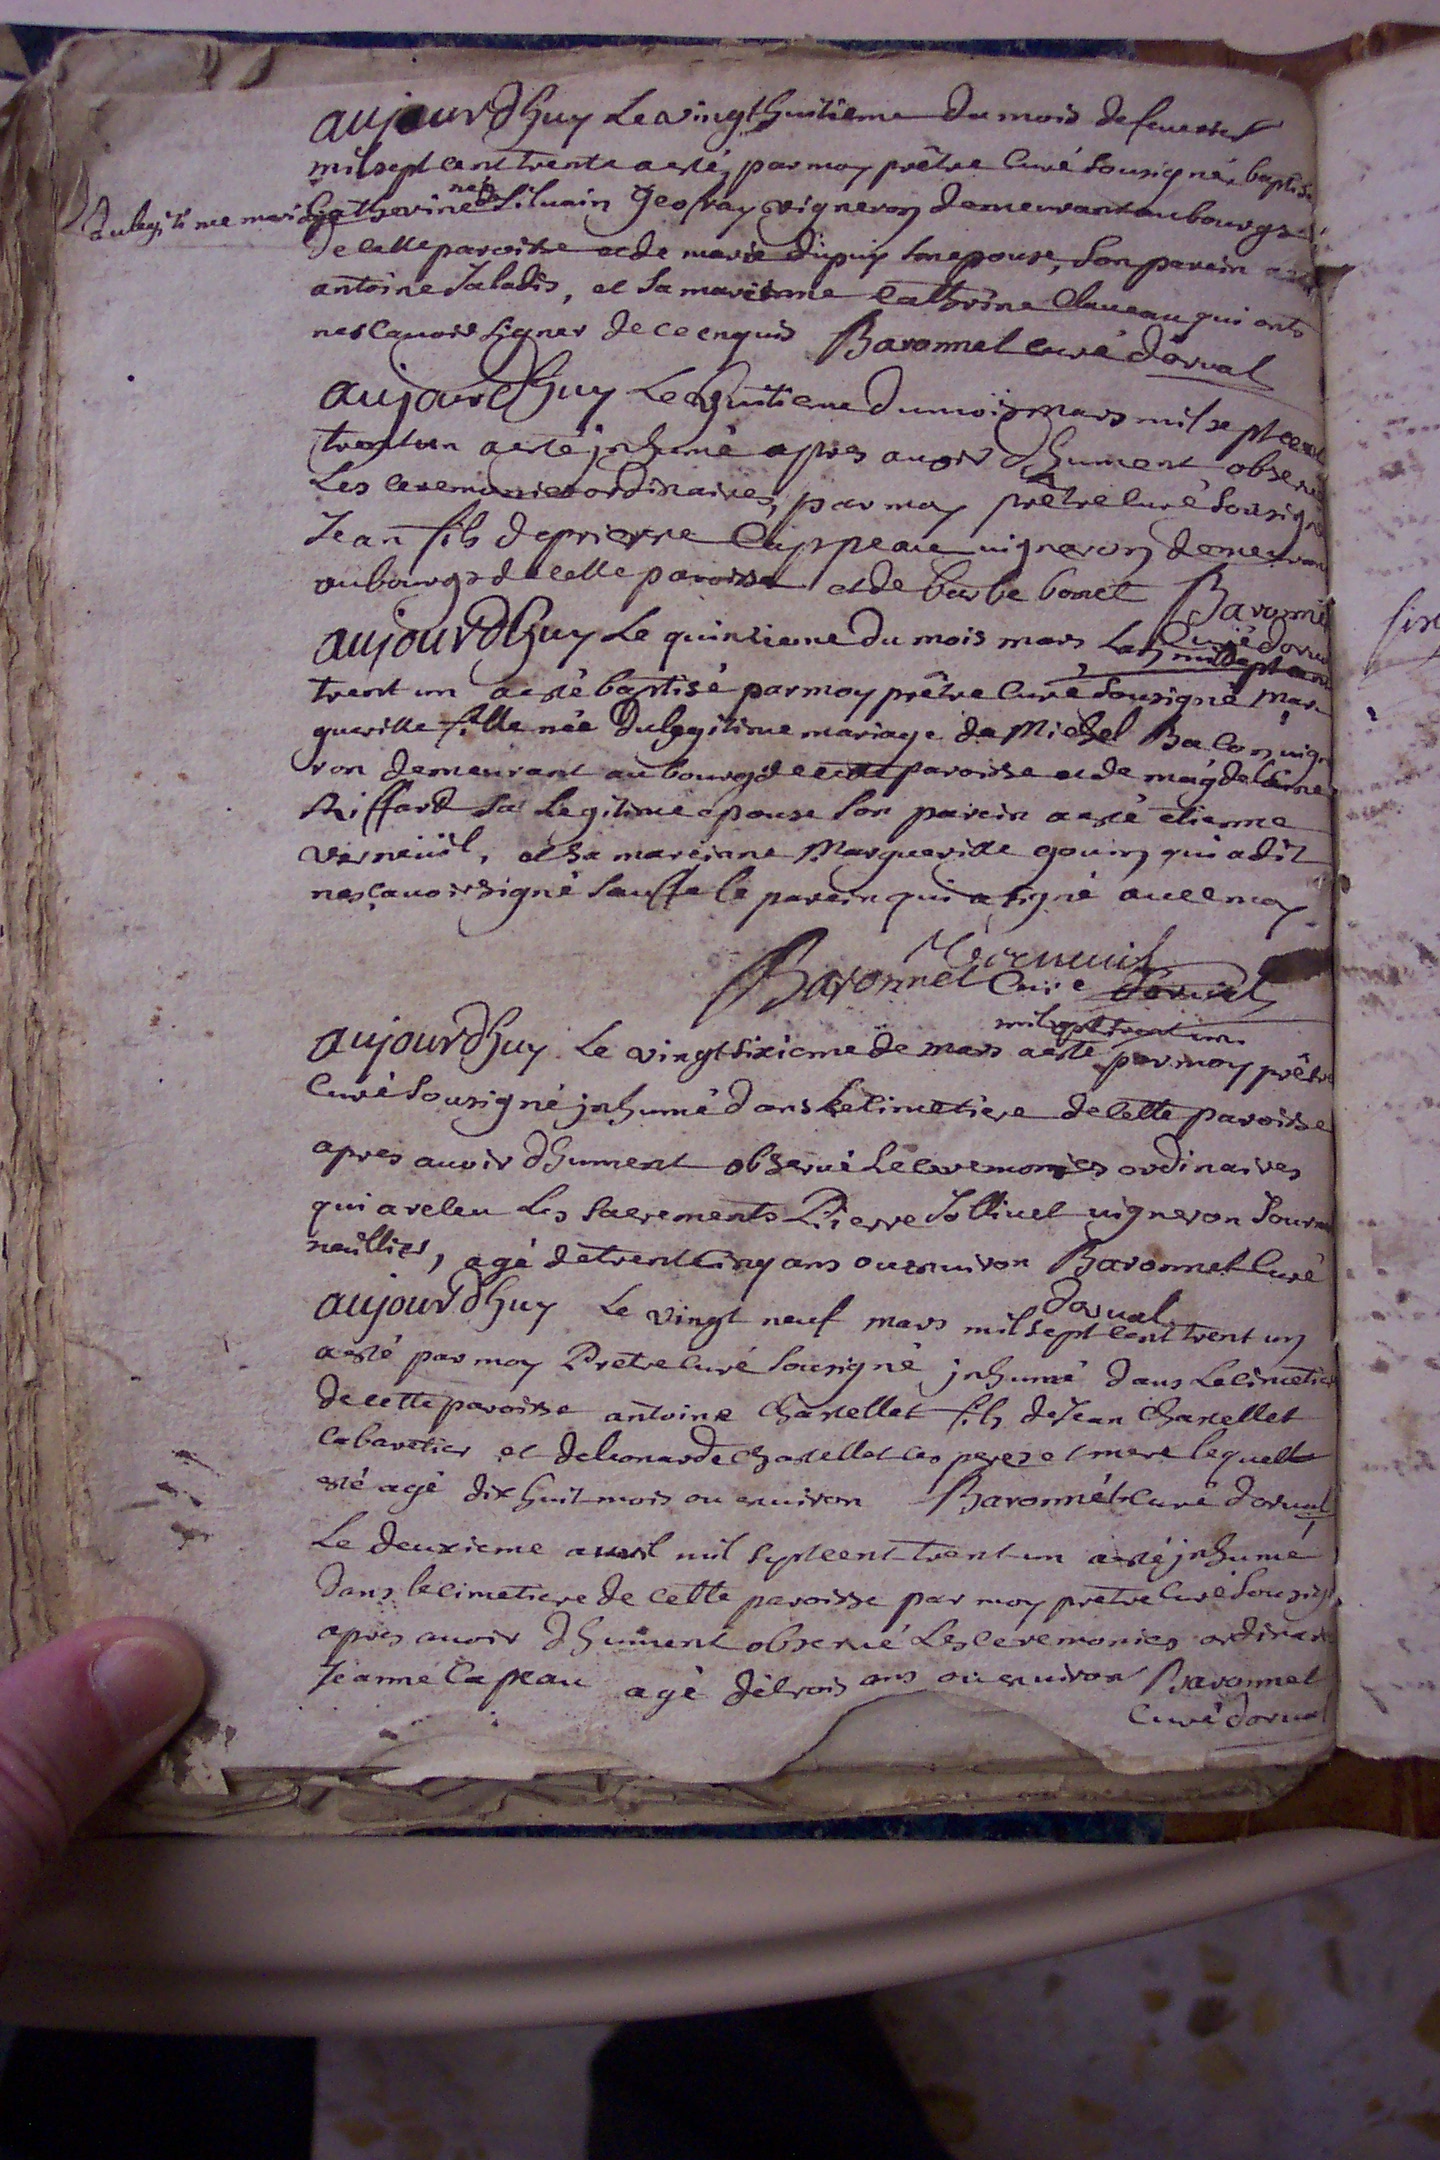 aujourdhuy le vingt huitieme du mois de feuvrier
mil sept cent trente a esté, par moy prêtre curé sousigné, baptisé
du legitime mariage
Catherine née de Siluain Geofray vigneron demeurant au bourgs
de cette paroisse et de marie dupuy son epouse, son parein a esté
antoine Saladis, et sa mareinne Cathrine Claueau qui onts
nesçauoir signer de ce enquis Baronnet curé dorval
aujourdhuy le huitieme du mois mars mil sept cent
trent un a esté jnhumé apres auoir dhument obserué
les ceremonies ordinaires, par moy prêtre curé sousigné
Jean fils de prierre Cuppeau uigneron demeurant
au bourgs de cette paroisse et de barbe bonet Baronnet
curé dorual
aujourdhuy le quinzieme du mois mars Lan mil sept cent
trent un a esté baptisé par moy prêtre curé sousigné mar
gueritte fille née du legitime mariage de Michel Bacon uigne
ron demeurant au bourgs de cette paroisse et de magdelenne
Riffard sa legitime epouse son parein a esté etienne
verneüil, et sa mareinne Margueritte gouin qui a dit
nesçauoir signé sauffe le parein qui a signé auec moy
Verneuil
Baronnet Curé dorual
mil sept trent un
aujourdhuy le vingt sixieme de mars a esté par moy prêtre
curé sousigné jnhumé dans le cimetiere de cette paroisse
apres auoir dhument obserué le ceremonies ordinaires
qui a receu les sacrements Pierre Jolliuet uigneron Jour
neillier, agé de trent cinq ans ou enuiron Baronnet curé
dorual
aujourdhuy le vingt neuf mars mil sept cent trent un
a esté par moy Pretre curé sousigné jnhumé dans le cimetiere
de cette paroisse antoine Chastellet fils de Jean Chastellet
cabaretier et de leonarde Chastellet ces pere et mere lequelt
esté agé dix huit mois ou enuiron Baronnet curé dorual
le deuxieme auril mil septcent trent un a esté jnhumé
dans le cimetiere de cette paroisse par moy pretre curé sousigé
apres auoir dhument obserué les ceremonies ordinaires
Jeanne Capeau agé de trois ans ou enuiron Baronnet
curé dorual